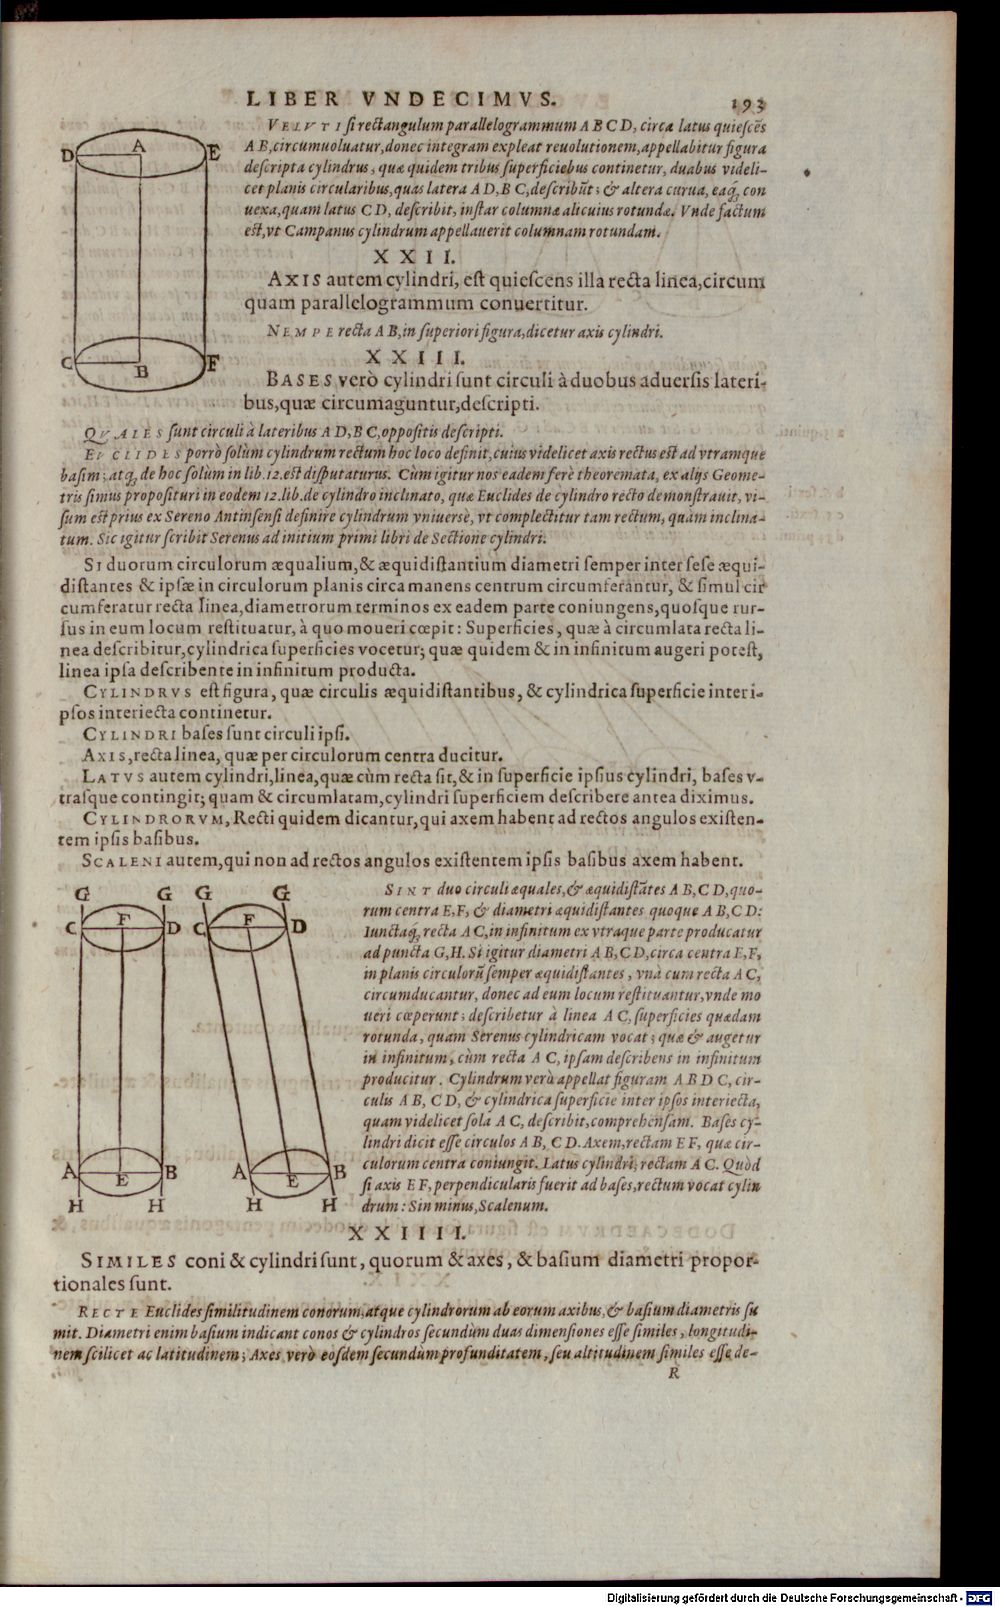 LIBER VNDECIMVS. 193
VELVTI si rectangulum parallelogrammum A B C D, circa latus quiescẽs
A B, circumuoluatur, donec integram expleat reuolutionem, appellabitur figura
descripta cylindrus, quæ quidem tribus superficiebus continetur, duabus videli-
cet planis circularibus, quas latera A D, B C, describũt; & altera curua, eaq́; con
uexa, quam latus C D, describit, instar columnæ alicuius rotundæ. Vnde factum
est, vt Campanus cylindrum appellauerit columnam rotundam.
D A E
C B F
X X I I.
AXIS autem cylindri, est quiescens illa recta linea, circum
quam parallelogrammum conuertitur.
NEMPE recta A B, in superiori figura, dicetur axis cylindri.
X X I I I.
BASES verò cylindri sunt circuli à duobus aduersis lateri-
bus, quæ circumaguntur, descripti.
QVALES sunt circuli à lateribus A D, B C, oppositis descripti.
EVCLIDES porrò solùm cylindrum rectum hoc loco definit, cuius videlicet axis rectus est ad vtramque
basim; atq; de hoc solùm in lib. 12. est disputaturus. Cùm igitur nos eadem ferè theoremata, ex alijs Geome-
tris simus proposituri in eodem 12. lib. de cylindro inclinato, quæ Euclides de cylindro recto demonstrauit, vi-
sum est prius ex Sereno Antinsensi definire cylindrum vniuersè, vt complectitur tam rectum, quàm inclina-
tum. Sic igitur scribit Serenus ad initium primi libri de Sectione cylindri.
SI duorum circulorum æqualium, & æquidistantium diametri semper inter sese æqui-
distantes & ipsæ in circulorum planis circa manens centrum circumferantur, & simul cir
cumferatur recta linea, diametrorum terminos ex eadem parte coniungens, quosque rur-
sus in eum locum restituatur, à quo moueri cœpit: Superficies, quæ à circumlata recta li-
nea describitur, cylindrica superficies vocetur; quæ quidem & in infinitum augeri potest,
linea ipsa describente in infinitum producta.
CYLINDRVS est figura, quæ circulis æquidistantibus, & cylindrica superficie inter i-
psos interiecta continetur.
CYLINDRI bases sunt circuli ipsi.
AXIS, recta linea, quæ per circulorum centra ducitur.
LATVS autem cylindri, linea, quæ cùm recta sit, & in superficie ipsius cylindri, bases v-
trasque contingit; quam & circumlatam, cylindri superficiem describere antea diximus.
CYLINDRORVM, Recti quidem dicantur, qui axem habent ad rectos angulos existen-
tem ipsis basibus.
SCALENI autem, qui non ad rectos angulos existentem ipsis basibus axem habent.
G G G G
C F D C F D
A E B A E B
H H H H
SINT duo circuli æquales, & æquidistãtes A B, C D, quo-
rum centra E, F, & diametri æquidistantes quoque A B, C D:
Iunctaq́; recta A C, in infinitum ex vtraque parte producatur
ad puncta G, H. Si igitur diametri A B, C D, circa centra E, F,
in planis circulorũ semper æquidistantes, vnà cum recta A C,
circumducantur, donec ad eum locum restituantur, vnde mo
ueri cœperunt; describetur à linea A C, superficies quædam
rotunda, quam Serenus cylindricam vocat; quæ & augetur
in infinitum, cùm recta A C, ipsam describens in infinitum
producitur. Cylindrum verò appellat figuram A B D C, cir-
culis A B, C D, & cylindrica superficie inter ipsos interiecta,
quam videlicet sola A C, describit, comprehensam. Bases cy-
lindri dicit esse circulos A B, C D. Axem, rectam E F, quæ cir-
culorum centra coniungit. Latus cylindri, rectam A C. Quòd
si axis E F, perpendicularis fuerit ad bases, rectum vocat cylin
drum: Sin minus, Scalenum.
X X I I I I.
SIMILES coni & cylindri sunt, quorum & axes, & basium diametri propor-
tionales sunt.
RECTE Euclides similitudinem conorum, atque cylindrorum ab eorum axibus, & basium diametris su
mit. Diametri enim basium indicant conos & cylindros secundùm duas dimensiones esse similes, longitudi-
nem scilicet ac latitudinem; Axes verò eosdem secundùm profunditatem, seu altitudinem similes esse de-
R
Digitalisierung gefördert durch die Deutsche Forschungsgemeinschaft - DFG